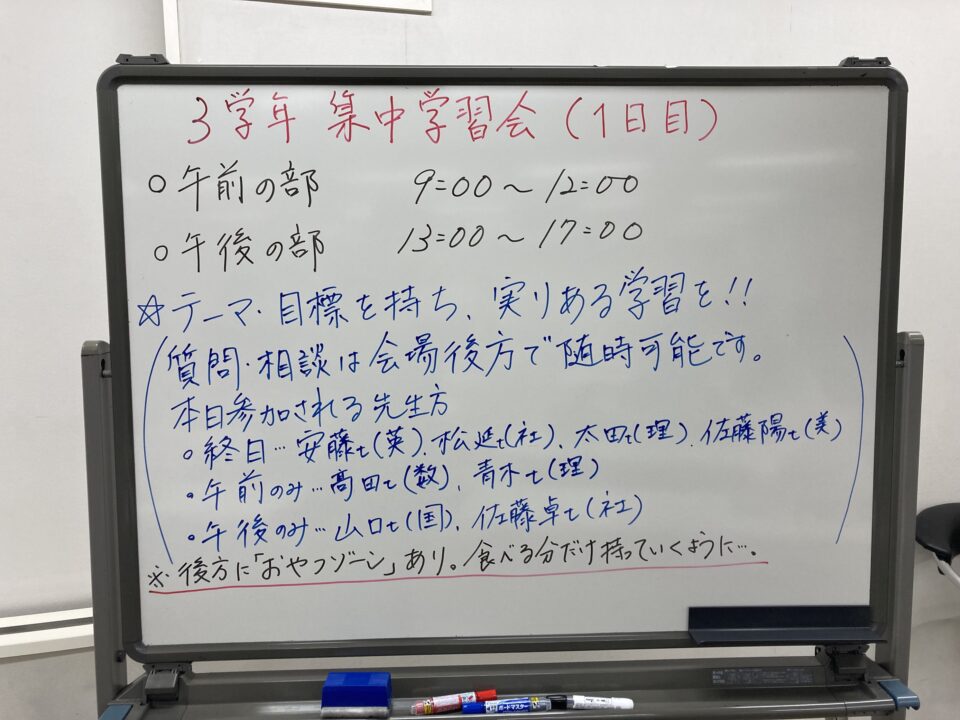 3学年 集中学習会(1日目)
○午前の部 9:00~12:00
○午後の部 13:00~17:00
☆テーマ・目標を持ち、実りある学習を!!
質問・相談は会場後方で随時可能です。
本日参加される先生方
○終日…安藤t(英)、松延t(社)、太田t(理)、佐藤陽t(美)
・午前のみ…高田t(数)、青木t(理)
・午後のみ…山口t(国)、佐藤卓t(社)
※後方に「おやつゾーン」あり。食べる分だけ持っていくように…。
ボードマスター